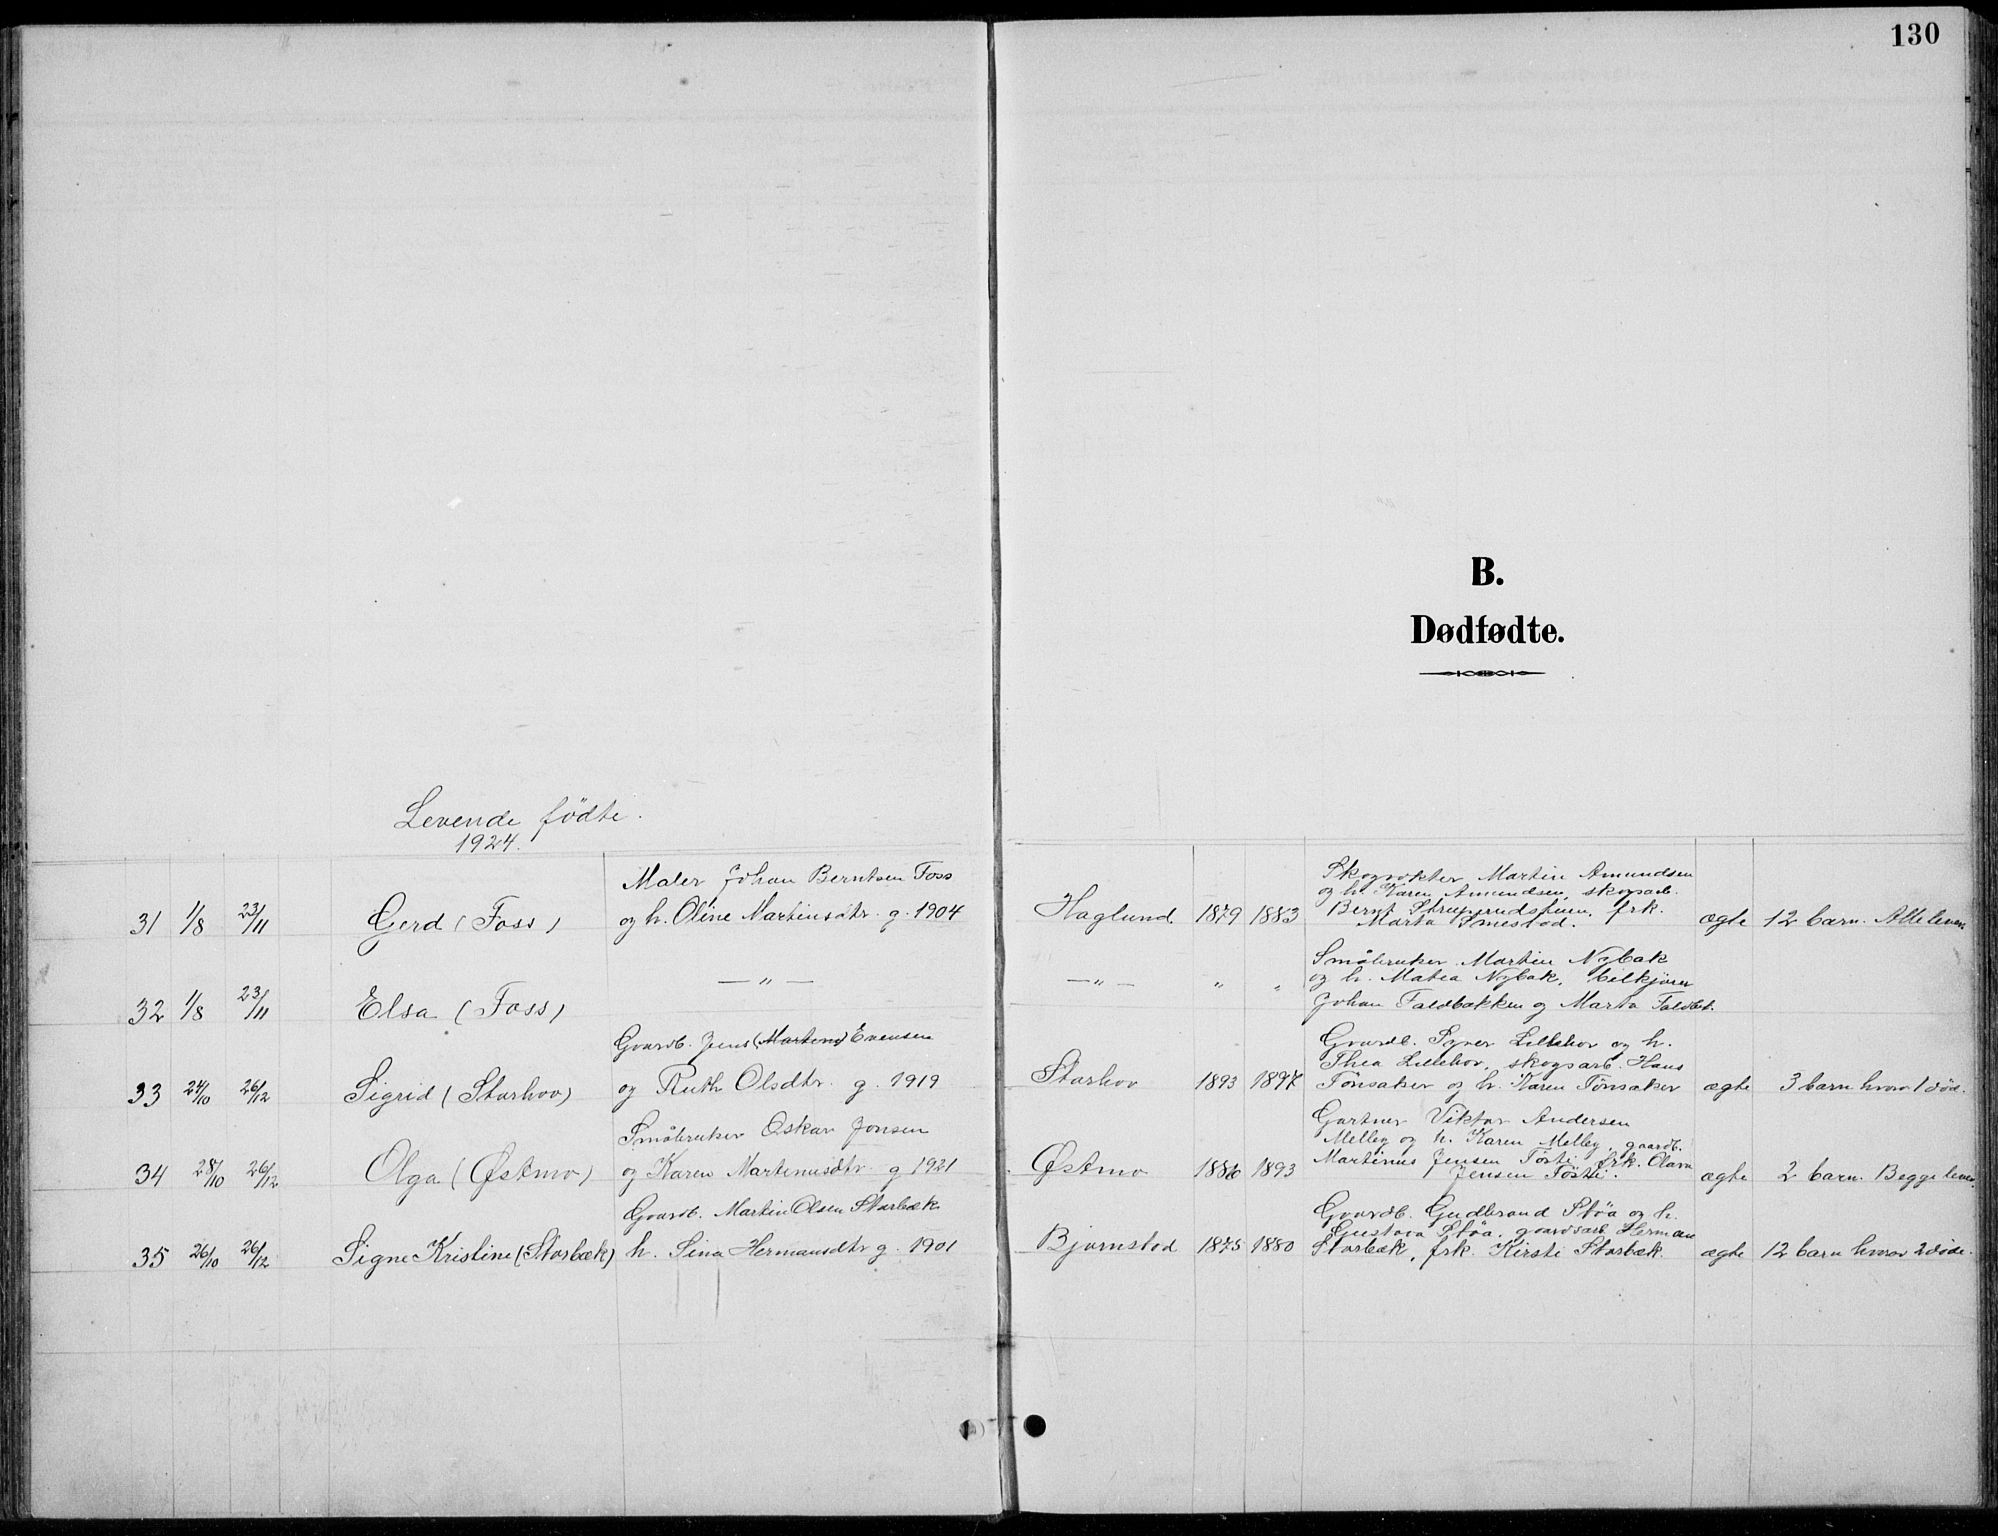 130
B.
Dødfødte.
Levende fødte.
1924.
31 1/8 23/11 Gerd (Foss) Maler Johan Berntsen Foss
og h. Oline Martinsdtr. g. 1904 Haglund 1879 1883 Skogvokter Martin Amundsen
og h. Karen Amundsen, skogsarb.
Bernt frk.
Marta Smestad. ægte 12 barn. Alle lever.
32 1/8 23/11 Elsa (Foss) — " — — " — " " Småbruker Martin Nybak
og h. Matea Nybak, bilkjører
Johan Faldbakken og Marta Faldbk.
33 24/10 26/12 Sigrid (Storhov) Gaardb. Jens (Martin) Evensen
og Ruth Olsdtr. g. 1919 Storhov 1893 1897 Gaardb. Syver Lillehov og h.
Thea Lillehov, skogsarb. Hans
Tønsaker og h. Karen Tønsaker ægte 3 barn hvorav 1 død.
34 28/10 26/12 Olga (Østmo) Småbruker Oskar Jonsen
og Karen Martinusdtr. g 1921 Østmo 1886 1893 Gartner Viktor Andersen
Melby og h. Karen Melby, gaardb.
Martinus Jensen Tøsti, frk. Olava
Jensen Tøsti. ægte 2 barn. Begge lever.
35 26/10 26/12 Signe Kristine (Storbæk) Gaardb. Martin Olsen Storbæk
h. Sina Hermansdtr g. 1901 Bjørnstad 1875 1880 Gaardb. Gudbrand Støa og h.
Gustava Støa, gaardsarb. Herman
Storbæk, frk. Kirsti Storbæk. ægte 12 barn hvorav 2 døde.